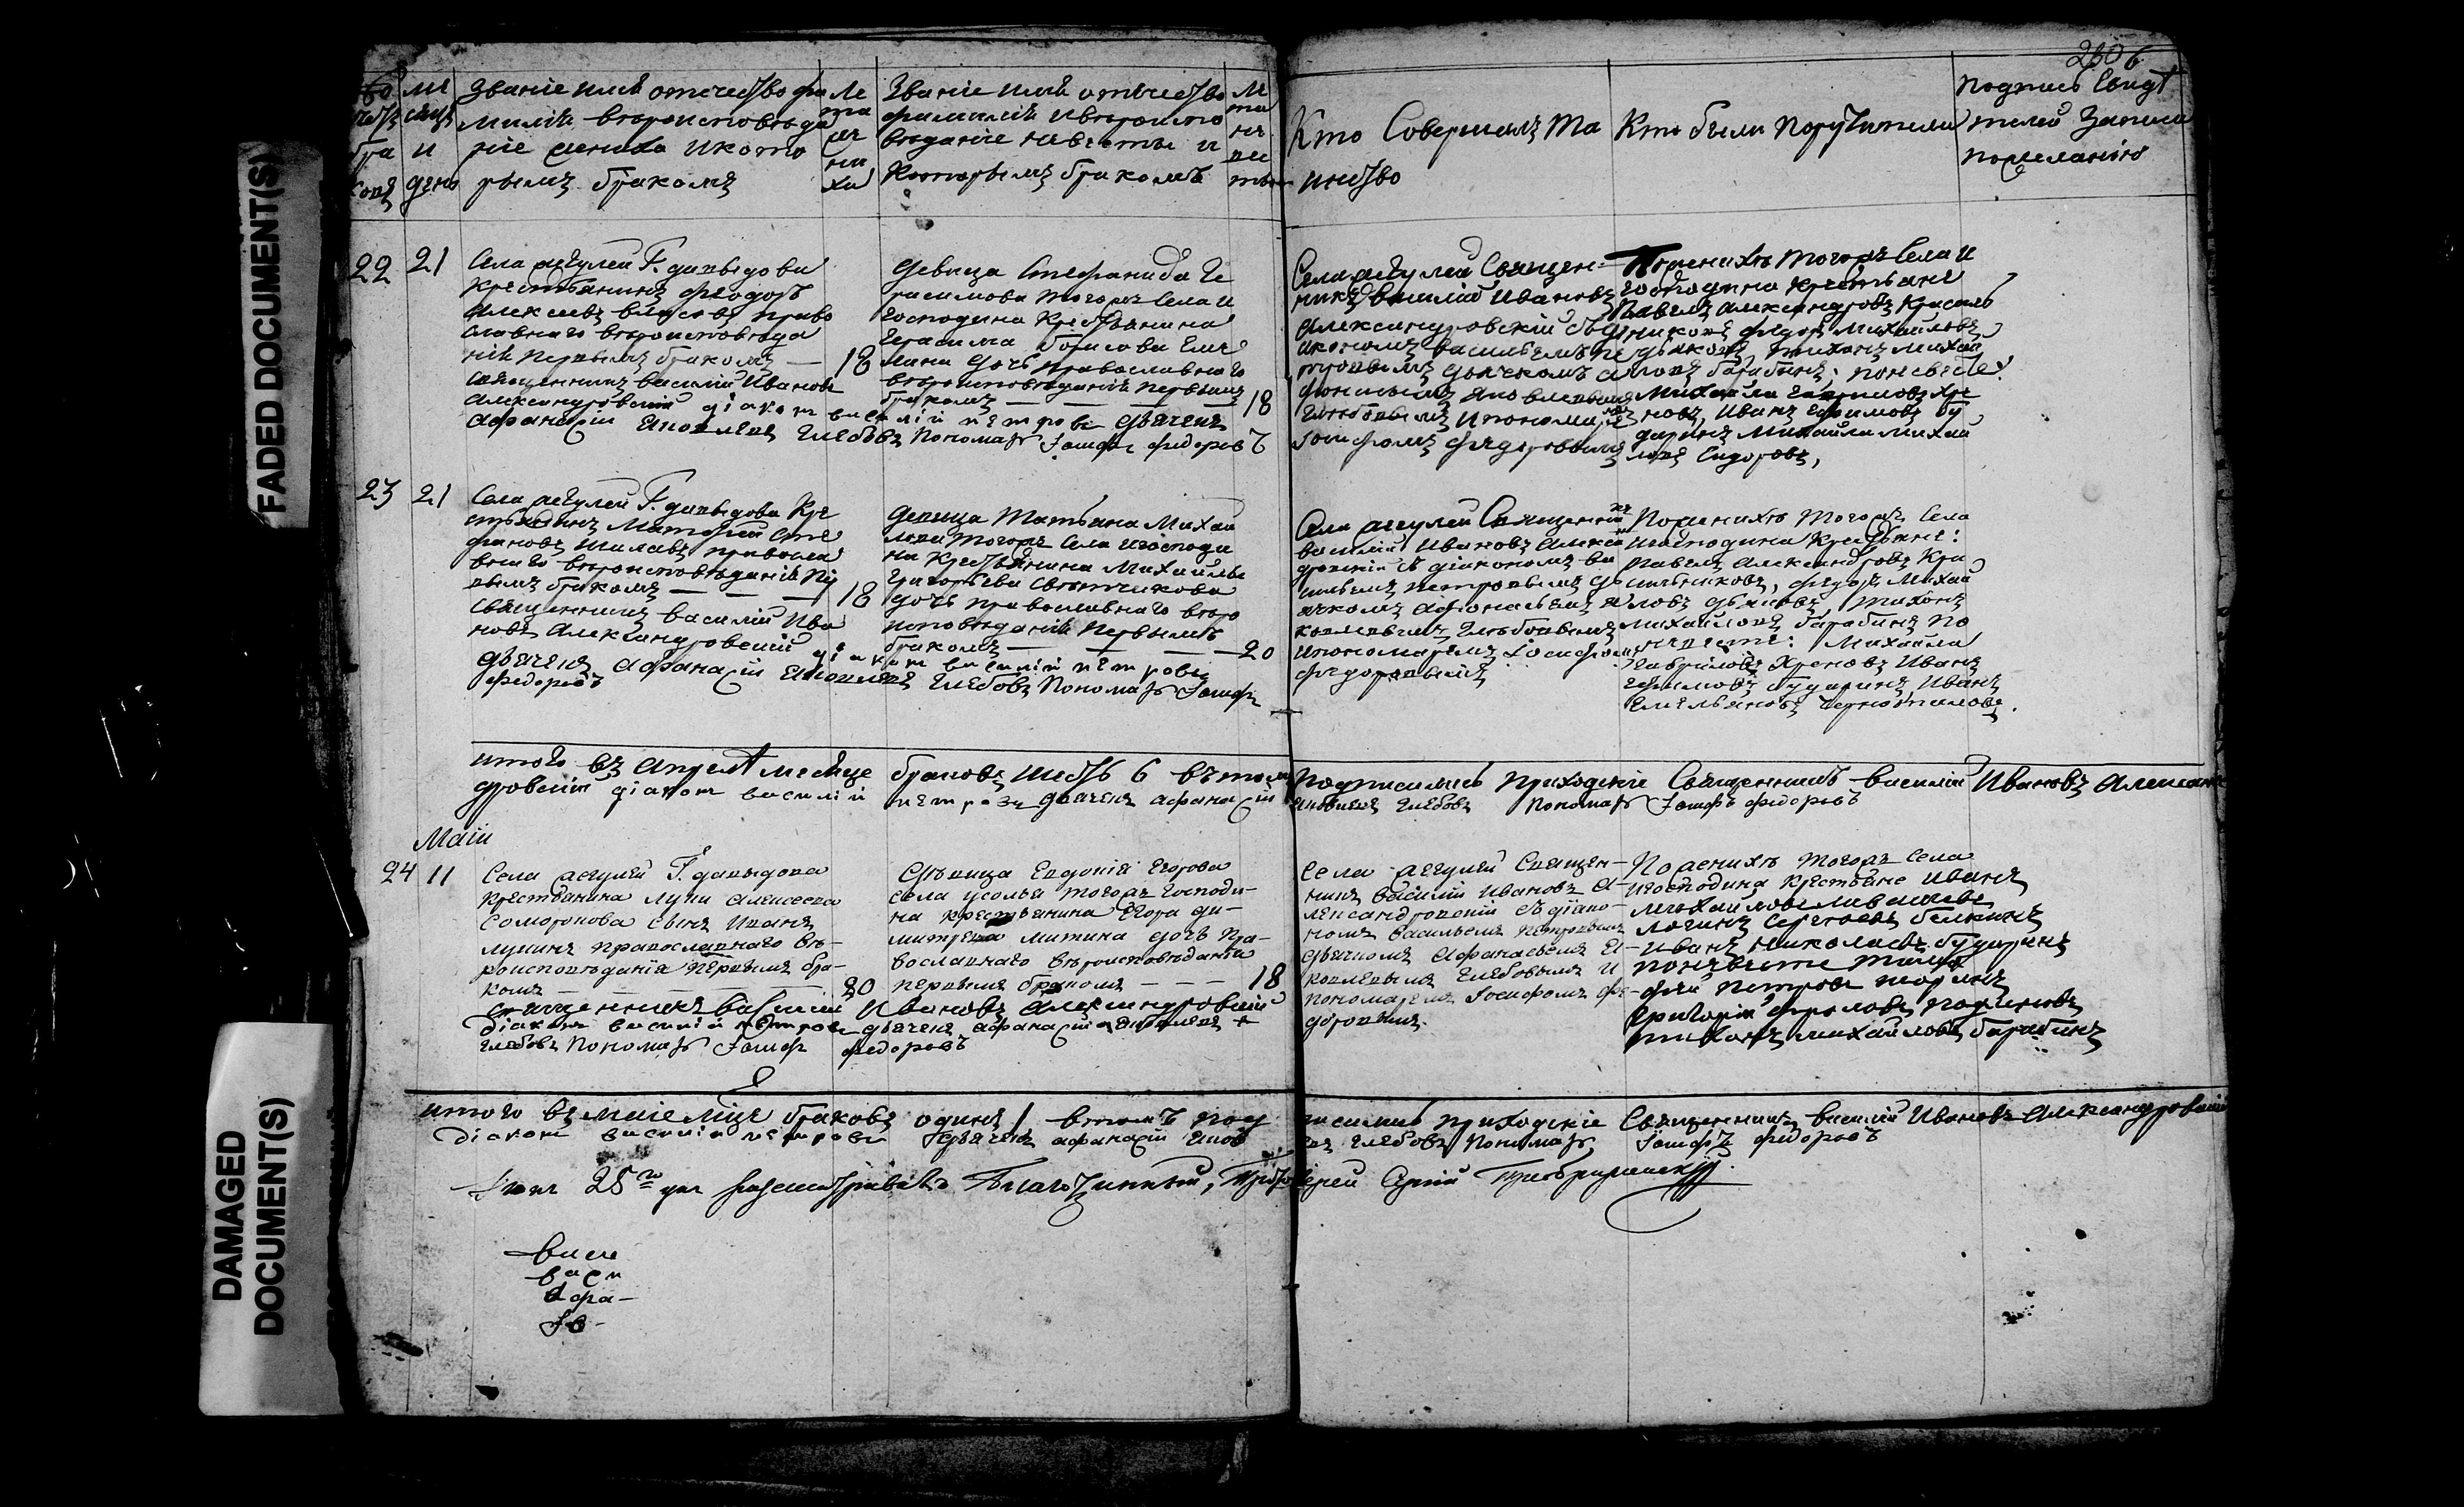 FADED DOCUMENT(S)
DAMAGED
DOCUMENT(S)
230 б
Званіе имя отечество фа
миліи вероисповѣда
ніе жениха икото
рымъ бракомъ
Званіе имя отечество
фамиліи ивероиспо
вѣданіе невѣсты и
которымъ бракомъ
Кто Совершалъ Та
инство
Кто были поручители
подпись Свидѣ
телей Записи
пожеланію
22
21
Села жегулей Г. давыдова
крестьянинъ феодоръ
алексѣевъ власовъ право
славнаго вероисповѣда
нія первымъ бракомъ —
18
священникъ василій Ивановъ
александровскій діаконъ василій петровъ дьячекъ
афанасій яковлевъ Глебовъ пономарь Іосифъ федоровъ
девица Стефанида Ге
расимова тогожъ Села и
господина крестьянина
герасима борисова
дочь православнаго
вероисповѣданія первымъ
бракомъ — — — —
18
Села жегулей Священ-
никъ василій Ивановъ
александровскій съ ді
акономъ васильемъ пе
тровымъ дьячкомъ а
фонасьемъ яковлевымъ
глебовымъ ипономаремъ
Іосифомъ федоровымъ
Поженихѣ тогожъ Села и
господина крестьяне
Павелъ александровъ красиль
никовъ федоръ Михайловъ
дьяковъ, тихонъ михай
ловъ барабинъ; поневѣсте:
Михайла гавриловъ хре
новъ, Иванъ Ефимовъ бу
даринъ Михайла михай
ловъ Сидоровъ,
23
21
Села жегулей Г. давыдова кре
стьянинъ Матофей Сте
фановъ шиловъ правосла
внаго вероисповѣданія пер
вымъ бракомъ — — —
18
священникъ василій Ива
новъ александровскій діаконъ василій петровъ
дьячекъ афанасій яковлевъ Глебовъ пономарь Іосифъ
федоровъ
девица Татьяна Михай
лова тогожъ Села игосподи
на крестьянина михайлы
григорьева светчикова
дочь православнаго веро
исповѣданія первымъ
бракомъ — — — —
20
Села жегулей Священникъ
василій Ивановъ Алексан
дровскій съ діакономъ ва
сильемъ петровымъ дь
ячкомъ афонасьемъ я
ковлевымъ глебовымъ
ипономаремъ Іосифомъ
федоровымъ
Поженихѣ тогожъ Села
игосподина крестьяне:
Павелъ Александровъ кра
сильниковъ, федоръ Михай
ловъ дьяковъ, тихонъ
михайловъ барабинъ по
невесте: Михайла
гавриловъ хреновъ Иванъ
Ефимовъ бударинъ, Иванъ
Емельяновъ
итого въ апрелѣ месяце браковъ шесть 6 въ томъ подписались приходскіе Священникъ василій Ивановъ Алексан
дровскій діаконъ василій петровъ дьячекъ афанасій яковлевъ Глебовъ пономарь Іосифъ федоровъ
Маій
24
11
Села жегулей Г. давыдова
крестьянина луки алексеева
Соморокова сынъ Иванъ
лукинъ православнаго вѣ-
роисповѣданія первымъ бра-
комъ — — — — —
20
священникъ василій Ивановъ Александровскій
діаконъ василій петровъ дьячекъ афанасій яковлевъ
Глебовъ пономарь Іосифъ федоровъ
Дѣвица Евдокія Егорова
села усолья тогожъ господи-
на крестьянина Егора ди-
митрева митина дочь пра-
вославнаго вѣроисповѣданія
первымъ бракомъ — — —
18
Села жегулей Священ-
никъ василій Ивановъ А-
лександровскій съ діако-
номъ васильемъ петровымъ
дьячкомъ афанасьемъ я-
ковлевымъ Глебовымъ и
пономаремъ Іосифомъ фе-
доровымъ.
Поженихѣ тогожъ села
игосподина крестьяне Иванъ
михайловъ
логинъ Сергеевъ белкинъ
Иванъ николаевъ бударинъ
поневѣсте
фей петровъ
григорій фроловъ
тихонъ михайловъ барабинъ
итого въ маіе мцѣ браковъ одинъ 1 втомъ подписались приходскіе Священникъ василій Ивановъ Александровскій
діаконъ василій петровъ дьячекъ афанасій яковлевъ Глебовъ пономарь Іосифъ федоровъ
28го дня разсматривалъ Благочинный, Протоіерей Сергій Преображенскій.
васи
васи
Афа-
Іо-